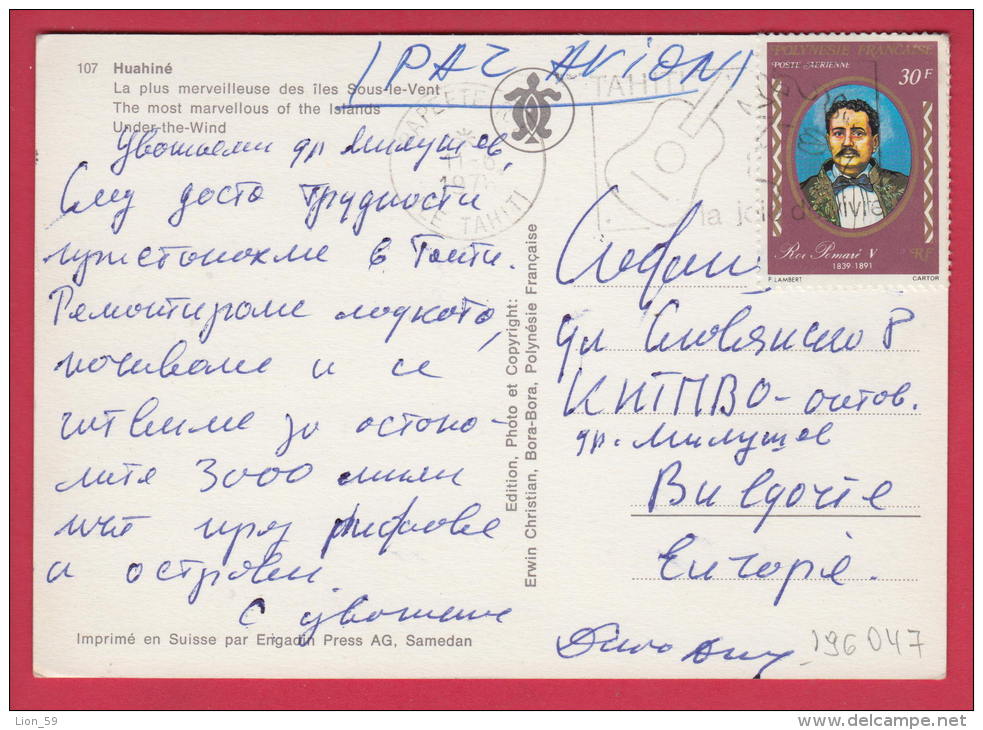 PAR AVION
107 Huahiné
La plus merveilleuse des îles Sous-le-Vent
The most marvellous of the Islands
Under-the-Wind
POLYNESIE FRANÇAISE
POSTE AERIENNE
30 F
Roi Pomaré V
1839-1891
RF
P LAMBERT
CARTOR
PAPEETE
11-8
ILE TAHITI
TAHITI
la joie de vivre
Уважаеми др. Милушев,
След доста трудности
пристанахме в Таити.
Ремонтираме лодката,
почиваме и се
готвиме за остана-
лите 3000 мили
път през рифове
и острови.
С уважение
Edition, Photo et Copyright:
Erwin Christian, Bora-Bora, Polynésie Française
София
ул Славянска 8
КНИПВО-
др. Милушев
Bulgarie
Europie.
Imprimé en Suisse par Engadin Press AG, Samedan
196047
Lion_59
delcampe.net